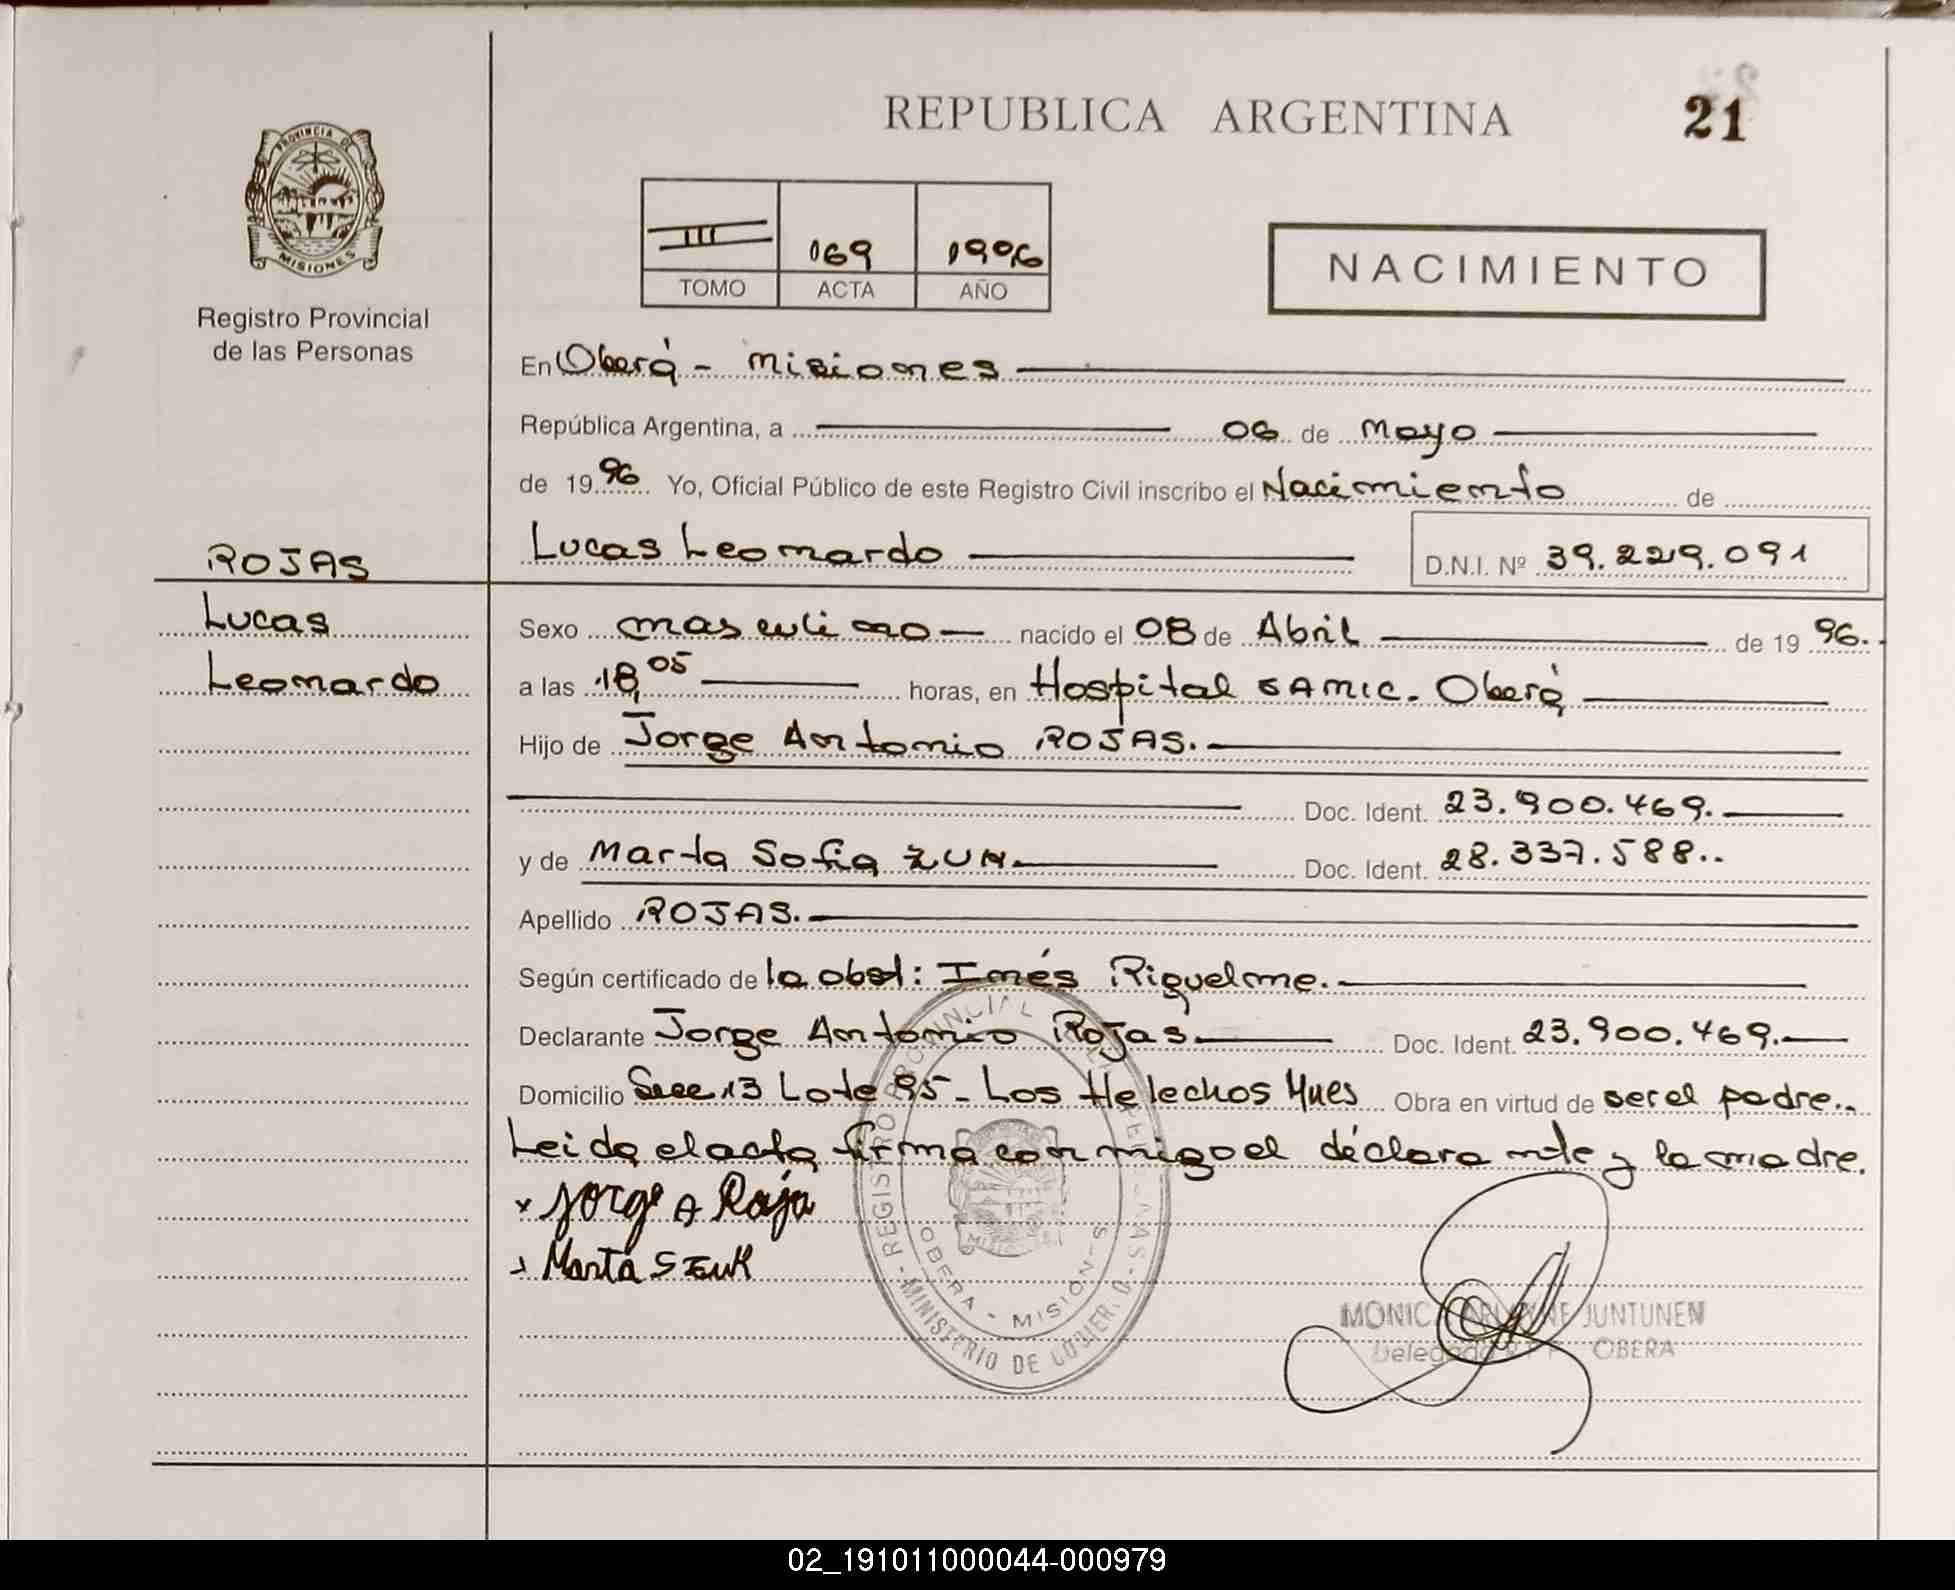 REPUBLICA ARGENTINA
21
PROVINCIA DE
MISIONES
Registro Provincial
de las Personas
III 069 1996
TOMO ACTA AÑO
NACIMIENTO
En Oberá - Misiones
República Argentina, a 06 de Mayo
de 1996 Yo, Oficial Público de este Registro Civil inscribo el Nacimiento de
Lucas Leonardo D.N.I. Nº 39.229.091
ROJAS
Lucas
Leonardo
Sexo masculino nacido el 08 de Abril de 1996.
a las 18,05 horas, en Hospital SAMIC. Oberá
Hijo de Jorge Antonio ROJAS.
Doc. Ident. 23.900.469.
y de Marta Sofia ZUK. Doc. Ident. 28.337.588..
Apellido ROJAS.
Según certificado de la obst: Inés Riquelme.
Declarante Jorge Antonio Rojas Doc. Ident. 23.900.469.
Domicilio Secc 13 Lote 95 - Los Helechos Mnes Obra en virtud de ser el padre..
Leida el acta firma conmigo el declarante y la madre.
x Jorge A Roja
Marta S Zuk
REGISTRO PROVINCIAL DE LAS PERSONAS - MINISTERIO DE GOBIER.
OBERA - MISIONES
MONICA JUNTUNEN
Delegada OBERA
02_191011000044-000979